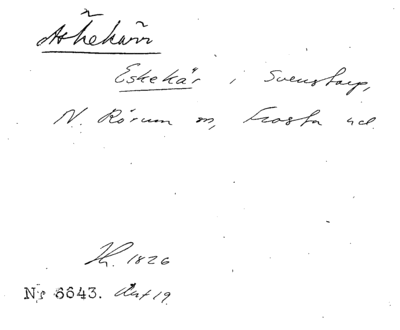 Äskekärr
Eskekär i Svenstorp,
N. Rörum sn, Frosta hd.
H. 1826
No 6643. Akt 19